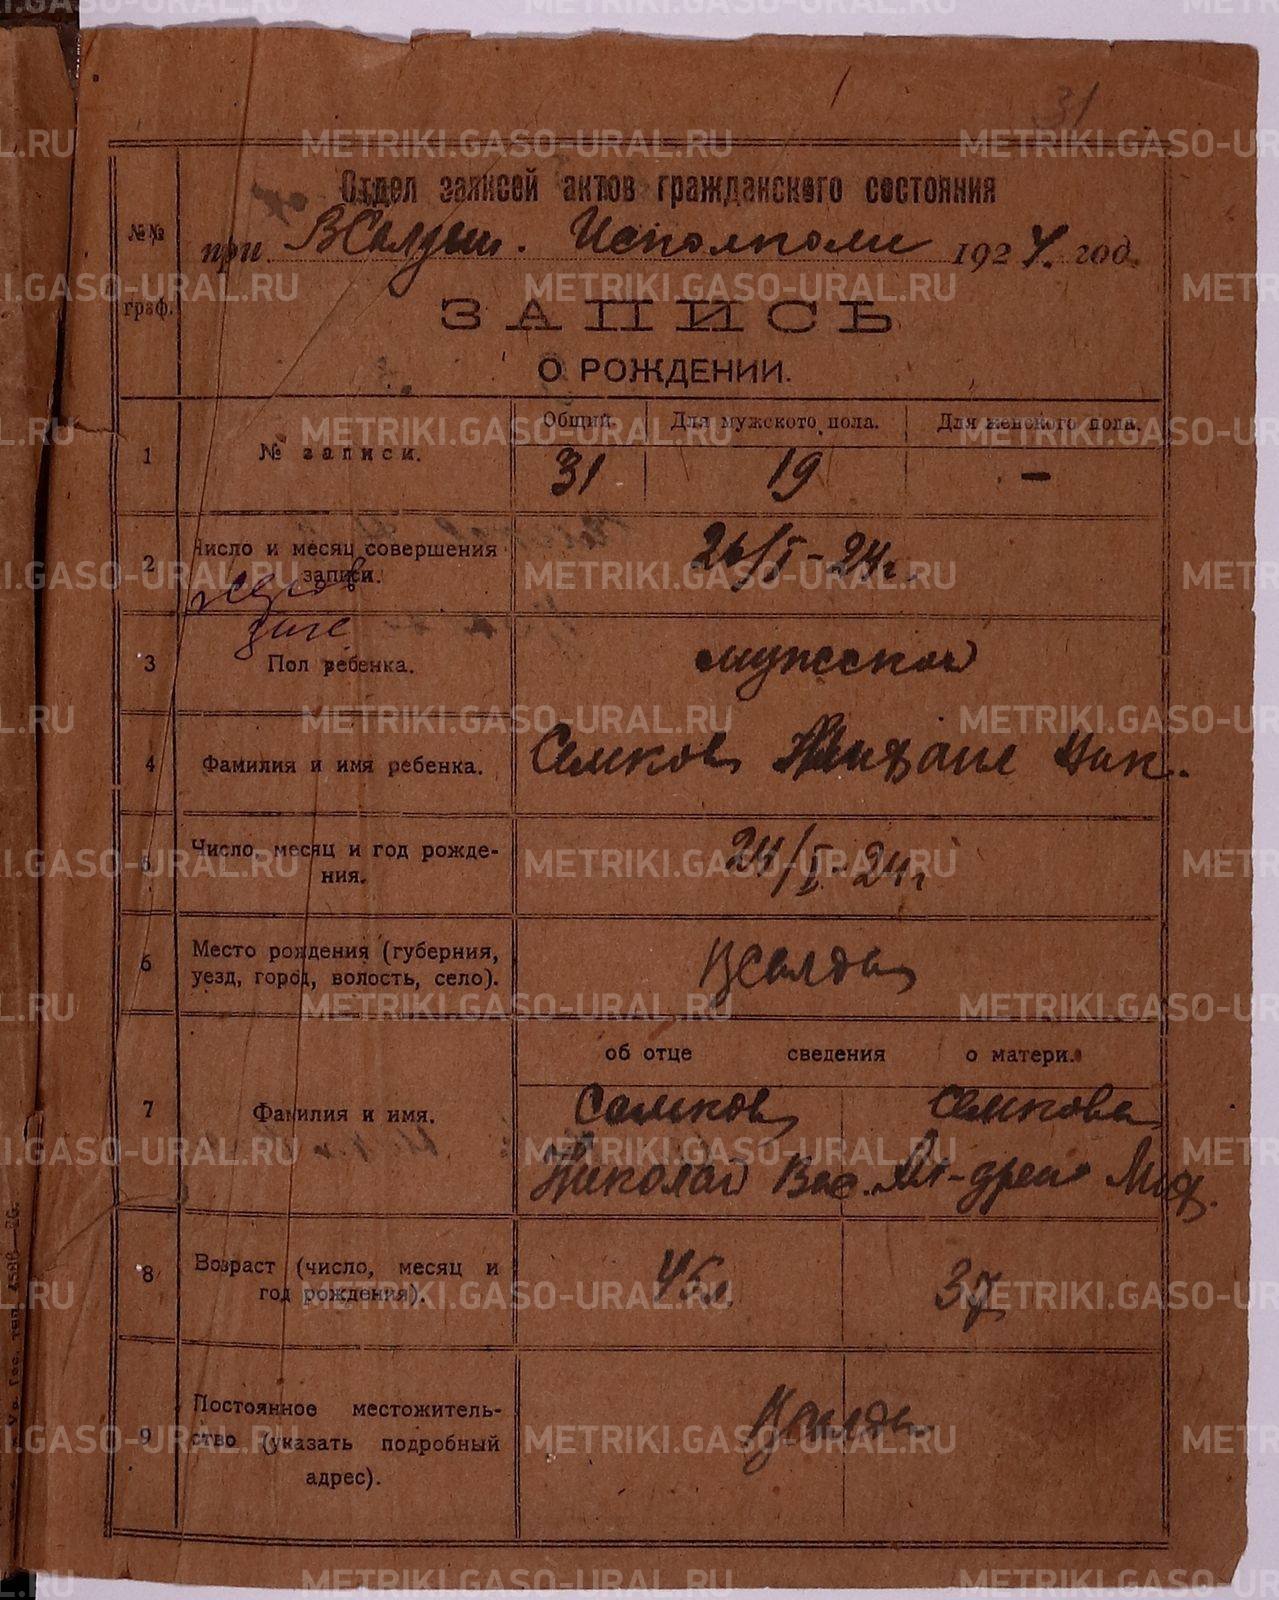 31
Отдел записей актов гражданского состояния
№№ граф.
при ВСалдин. Исполкоме 1924. год.
ЗАПИСЬ
О РОЖДЕНИИ.
Общий. Для мужского пола. Для женского пола.
1 № записи. 31 19 —
2 Число и месяц совершения
записи. 26/I-24г.
3 Пол ребенка. мужской
4 Фамилия и имя ребенка. Семков Ник.
5 Число, месяц и год рожде-
ния. 24/I-24г
6 Место рождения (губерния,
уезд, город, волость, село). ВСалда
об отце сведения о матери.
7 Фамилия и имя. Семков Семкова
Николай Вас. Ал-дра Миф.
8 Возраст (число, месяц и
год рождения). 45л. 37
9 Постоянное местожитель-
ство (указать подробный
адрес). ВСалда
METRIKI.GASO-URAL.RU